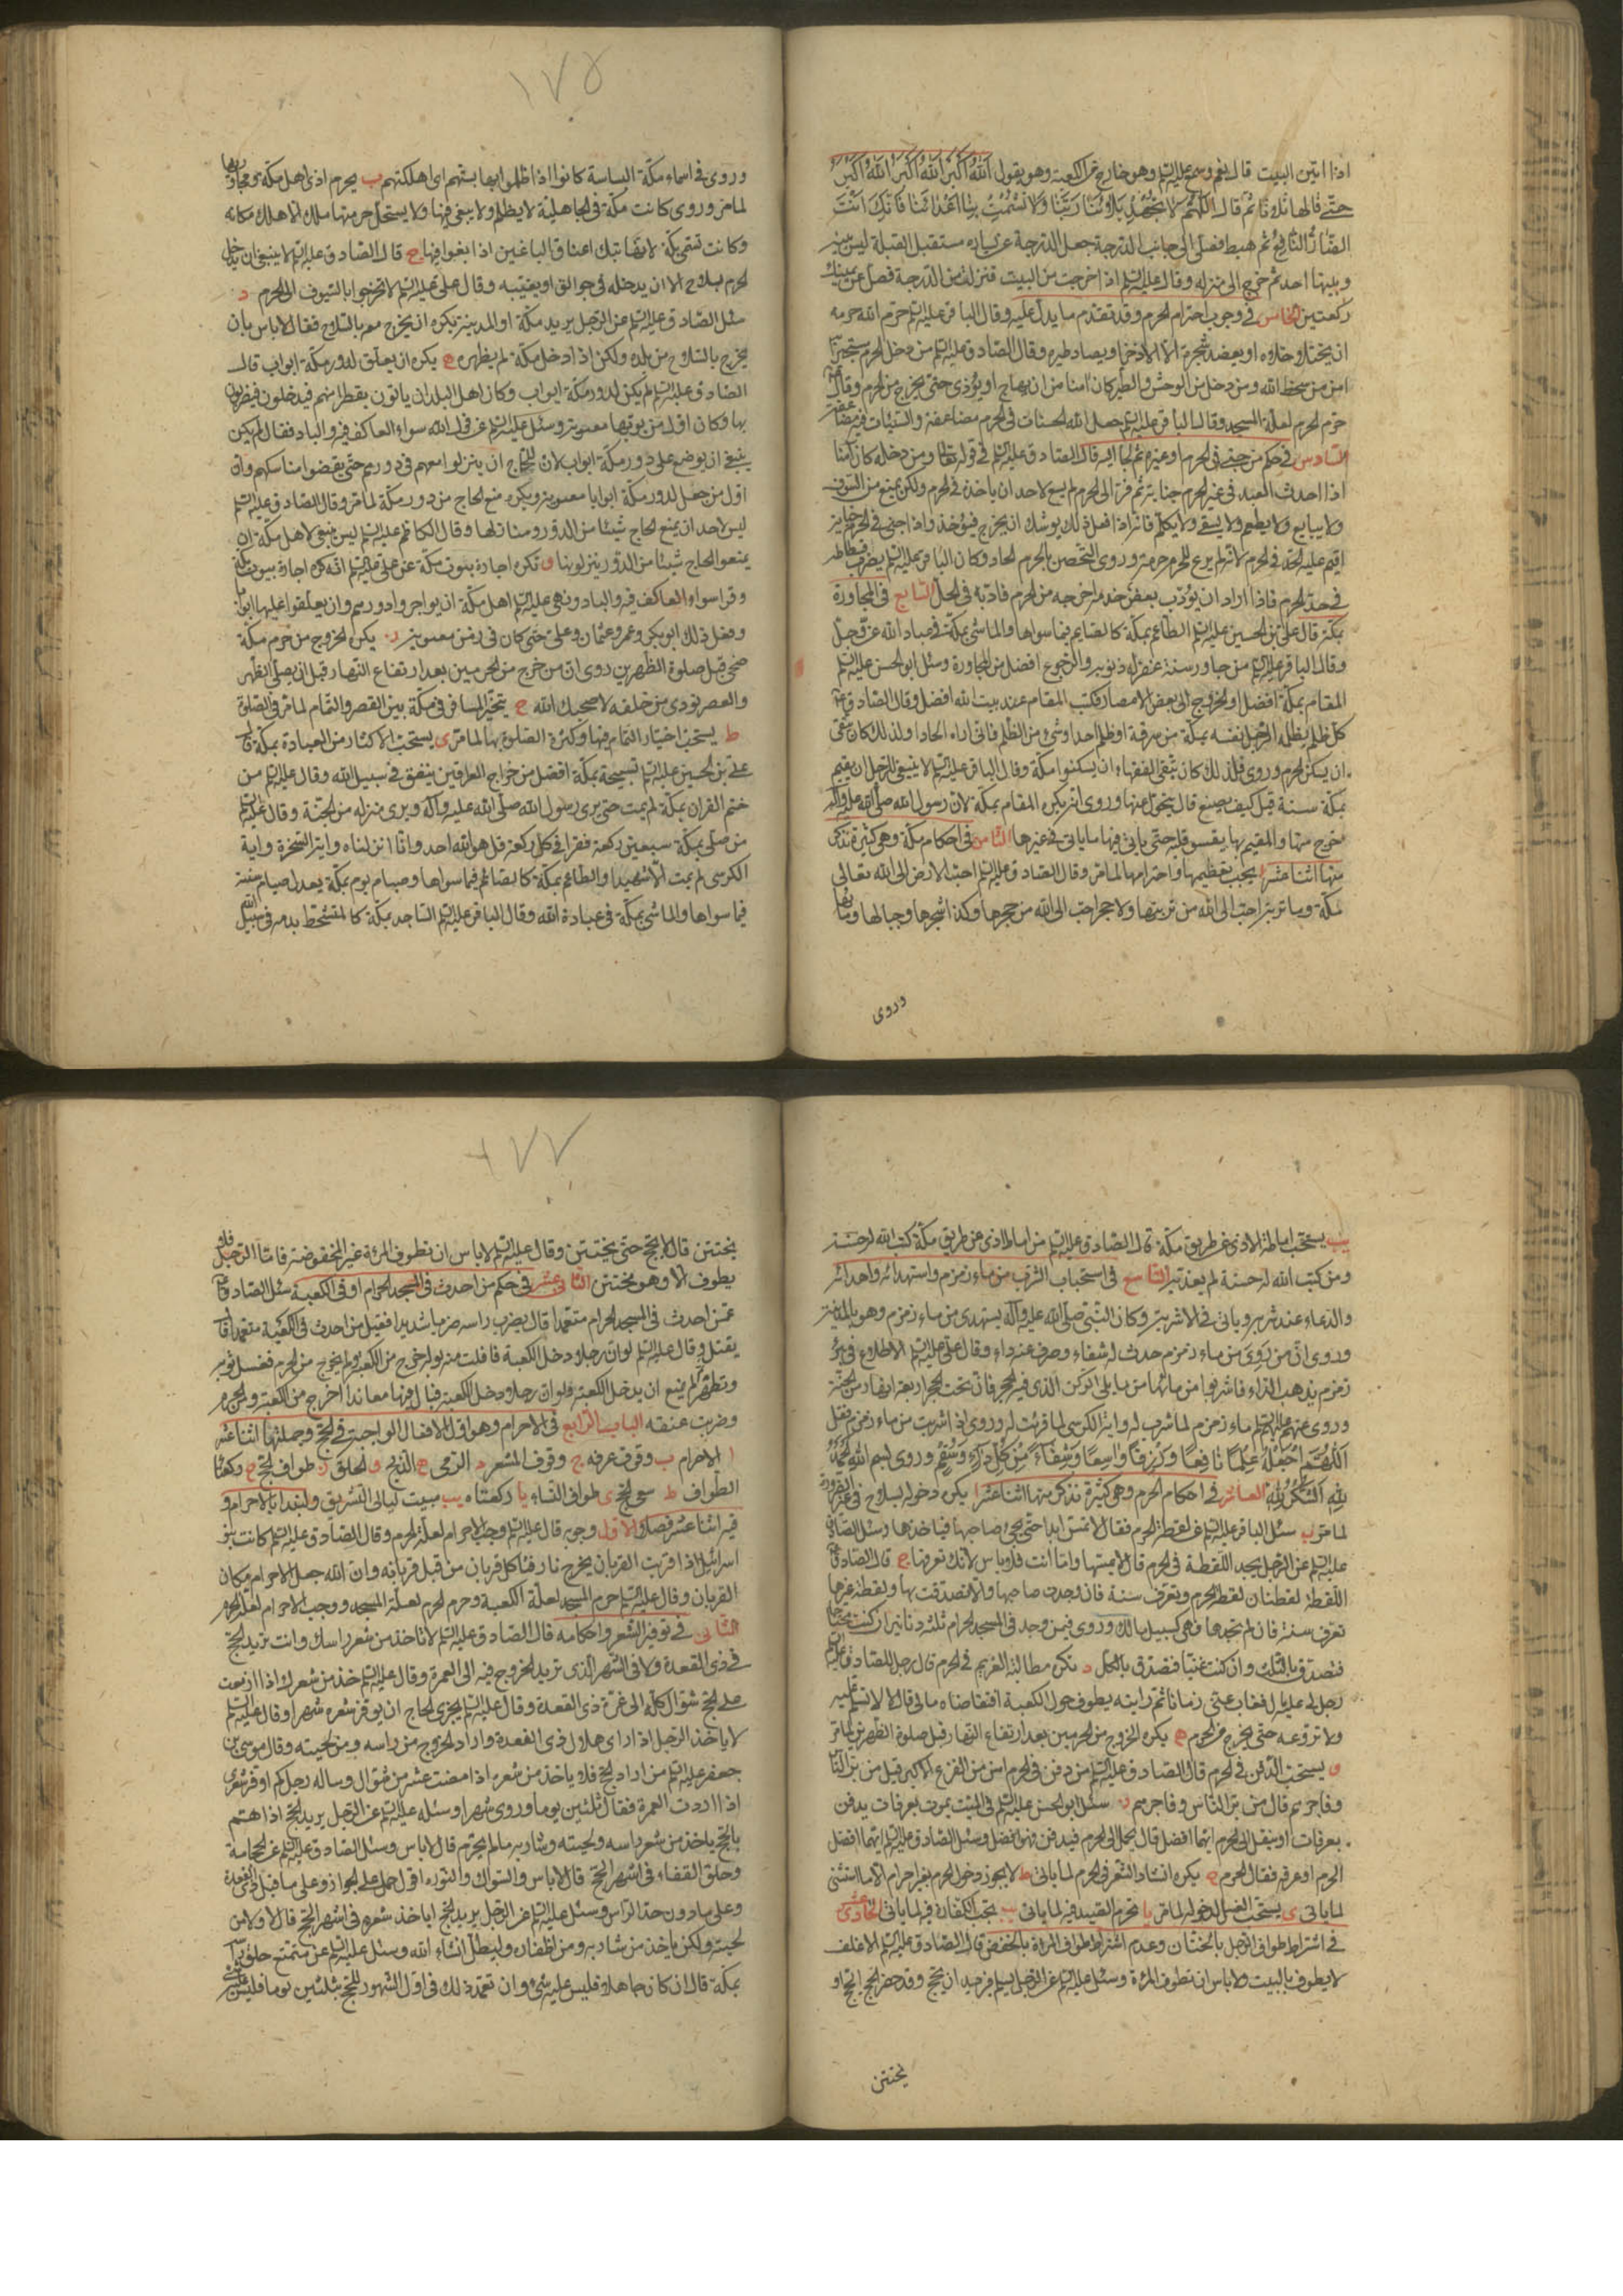 ١٧٥
اذا اتين البيت قال نعم وسمع عليه السلم وهو خارج من الكعبة وهو يقول الله اكبر الله اكبر الله اكبر
حتى قالها ثلثا ثم قال اللهم لا تجهد بلاءنا ربنا ولا تشمت بنا اعدائنا فانك انت
الضار النافع ثم هبط فصلى الى جانب الدرجة جعل الدرجة عن يساره مستقبل القبلة ليس بينه
وبينها احد ثم خرج الى منزله وقال عليه السلم اذا خرجت من البيت فنزلت من الدرجة فصل عن يمينك
ركعتين الخامس في وجوب احترام الحرم وقد تقدم ما يدل عليه وقال الباقر عليه السلم حرم الله حرمه
ان يختلا خلاه او يعضد شجره الا الاذخر او يصاد طيره وقال الصادق عليه السلم من دخل الحرم مستجيرا
امن من سخط الله ومن دخل من الوحش والطير كان امنا من ان يهاج او يؤذى حتى يخرج من الحرم وقال
حرم الحرم لعلة المسجد وقال الباقر عليه السلم جعل الله الحسنات في الحرم مضاعفة والسيئات فيه مضاعفة
السادس في حكم من جنى في الحرم او غيره ثم لجأ اليه قال الصادق عليه السلم في قوله تعالى ومن دخله كان آمنا
اذا احدث العبد في غير الحرم جناية ثم فر الى الحرم لم يسع لاحد ان ياخذه في الحرم ولكن يمنع من السوق
ولا يبايع ولا يطعم ولا يسقى ولا يكلم فانه اذا فعل ذلك يوشك ان يخرج فيؤخذ واذا جنى في الحرم جناية
اقيم عليه الحد في الحرم لانه لم يرع للحرم حرمته وروى التحصن بالحرم الحاد وكان الباقر عليه السلم يضرب فسطاطه
في حد الحرم فاذا اراد ان يؤدب بعض خدمه اخرجه من الحرم فادبه في الحل السابع في المجاورة
بمكة قال علي بن الحسين عليه السلم الطاعم بمكة كالصايم فيما سواها والماشي بمكة في عباد الله عز وجل
وقال الباقر عليه السلم من جاور سنة غفر له ذنوبه والرجوع افضل من المجاورة وسئل ابو الحسن عليه السلم
المقام بمكة افضل او الخروج الى بعض الامصار فكتب المقام عند بيت الله افضل وقال الصادق
كل ظلم يظلم الرجل نفسه بمكة من سرقة او ظلم احد او شئ من الظلم فاني اراه الحادا ولذلك كان يتقى
ان يسكن الحرم وروى فلذلك كان يتقى الفقهاء ان يسكنوا مكة وقال الباقر عليه السلم لا ينبغي للرجل ان يقيم
بمكة سنة قيل كيف يصنع قال يتحول عنها وروى انه يكره المقام بمكة لان رسول الله صلى الله عليه وآله
اخرج منها والمقيم بها يقسو قلبه حتى ياتي فيها ما ياتي في غيرها الثامن في احكام مكة وهي كثيرة نذكر
منها اثنا عشر ا يجب تعظيمها واحترامها لما مر وقال الصادق عليه السلم احب الارض الى الله تعالى
مكة وما تربة احب الى الله من تربتها ولا حجر احب الى الله من حجرها وكذا شجرها وجبالها وماؤها
وروى
وروى في اسماء مكة الباسة كانوا اذا ظلموا بها بستهم اي اهلكتهم ب يحرم اذى اهل مكة ومجاوريها
لما مر وروى كانت مكة في الجاهلية لا يظلم ولا يبغى فيها ولا يستحل حرمتها ملك الا هلك مكانه
وكانت تسمى بكة لانها تبك اعناق الباغين اذا بغوا فيها ج قال الصادق عليه السلم لا ينبغي ان يدخل
الحرم بسلاح الا ان يدخله في جوالق او يغيبه وقال علي عليه السلم لا تخرجوا بالسيوف الى الحرم د
سئل الصادق عليه السلم عن الرجل يريد مكة او المدينة يكره ان يخرج معه بالسلاح فقال لا باس بان
يخرج بالسلاح من بلده ولكن اذا دخل مكة لم يظهره ه يكره ان يعلق لدور مكة ابواب قال
الصادق عليه السلم لم يكن لدور مكة ابواب وكان اهل البلدان ياتون بقطرانهم فيدخلون فيضربون
بها وكان اول من بوبها معوية وسئل عليه السلم عن قول الله سواء العاكف فيه والباد فقال لم يكن
ينبغي ان يوضع على دور مكة ابواب لان للحاج ان ينزلوا معهم في دورهم حتى يقضوا مناسكهم وان
اول من جعل لدور مكة ابوابا معوية و يكره منع الحاج من دور مكة لما مر وقال الصادق عليه السلم
ليس لاحد ان يمنع الحاج شيئا من الدور ومنازلها وقال الكاظم عليه السلم ليس ينبغي لاهل مكة ان
يمنعوا الحاج شيئا من الدور ينزلونها و تكره اجارة بيوت مكة عن علي عليه السلم انه كره اجارة بيوت مكة
وقرا سواء العاكف فيه والباد ونهى عليه السلم اهل مكة ان يواجروا دورهم وان يعلقوا عليها ابوابا
وفعل ذلك ابو بكر وعمر وعثمان وعلي حتى كان في زمن معوية ز يكره الخروج من حرم مكة
ضحى قبل صلوة الظهرين روى ان من خرج من الحرمين بعد ارتفاع النهار قبل ان يصلي الظهر
والعصر نودى من خلفه لا صحبك الله ح يتخير المسافر في مكة بين القصر والتمام لما مر في الصلوة
ط يستحب اختيار التمام فيها وكثرة الصلوة بها لما مر ى يستحب الاكثار من العبادة بمكة قال
علي بن الحسين عليه السلم تسبيحة بمكة افضل من خراج العراقين ينفق في سبيل الله وقال عليه السلم من
ختم القران بمكة لم يمت حتى يرى رسول الله صلى الله عليه وآله ويرى منزله من الجنة وقال عليه السلم
من صلى بمكة سبعين ركعة فقرا في كل ركعة قل هو الله احد وانا انزلناه واية السخرة واية
الكرسي لم يمت الا شهيدا والطاعم بمكة كالصائم فيما سواها وصيام يوم بمكة يعدل صيام سنة
فيما سواها والماشي بمكة في عبادة الله وقال الباقر عليه السلم الساجد بمكة كالمتشحط بدمه في سبيل الله
يب يستحب اماطة الاذى عن طريق مكة قال الصادق عليه السلم من اماط اذى عن طريق مكة كتب الله له حسنة
ومن كتب الله له حسنة لم يعذبه التاسع في استحباب الشرب من ماء زمزم واستهدائه واهدائه
والدعاء عند شربه وياتي في الاشربة وكان النبي صلى الله عليه وآله يستهدى من ماء زمزم وهو بالمدينة
وروى ان من روى من ماء زمزم حدث له شفاء وصرف عنه داء وقال علي عليه السلم الاطلاع في بئر
زمزم يذهب الداء فاشربوا من مائها مما يلي الركن الذي فيه الحجر فان تحت الحجر اربعة انهار من الجنة
وروى عنهم عليهم السلم ماء زمزم لما شرب له واية الكرسي لما قرئت له وروى اذا شربت من ماء زمزم فقل
اللهم اجعله علما نافعا ورزقا واسعا وشفاء من كل داء وسقم وروى بسم الله الحمد
لله الشكر لله العاشر في احكام الحرم وهي كثيرة نذكر منها اثنا عشر ا يكره دخوله بسلاح في غير الضرورة
لما مر ب سئل الباقر عليه السلم عن لقطة الحرم فقال لا تمس ابدا حتى يجئ صاحبها فياخذها وسئل الصادق
عليه السلم عن الرجل يجد اللقطة في الحرم قال لا يمسها واما انت فلا باس لانك تعرفها ج قال الصادق
اللقطة لقطتان لقطة الحرم وتعرف سنة فان وجدت صاحبها والا تصدقت بها ولقطة غيرها
تعرف سنة فان لم تجدها فهي كسبيل مالك وروى فيمن وجد في المسجد الحرام ثلثة دنانير ان كنت محتاجا
فتصدق بالثلث وان كنت غنيا فتصدق بالكل د تكره مطالبة الغريم في الحرم قال رجل للصادق عليه السلم
رجل لي عليه مال فغاب عني زمانا ثم رايته يطوف حول الكعبة افتقاضاه مالي قال لا لا تسلم عليه
ولا تروعه حتى يخرج من الحرم ه يكره الخروج من الحرمين بعد ارتفاع النهار قبل صلوة الظهرين لما مر
و يستحب الدفن في الحرم قال الصادق عليه السلم من دفن في الحرم امن من الفزع الاكبر قيل من بر الناس
وفاجرهم قال من بر الناس وفاجرهم ز سئل ابو الحسن عليه السلم في الميت يموت بعرفات يدفن
بعرفات او ينقل الى الحرم ايهما افضل قال يحمل الى الحرم فيدفن فهو افضل وسئل الصادق عليه السلم ايهما افضل
الحرم او عرفة فقال الحرم ح يكره انشاد الشعر في الحرم لما ياتي ط لا يجوز دخول الحرم بغير احرام الا ما استثنى
لما ياتي ى يستحب الغسل لدخوله لما مر يا تحرم الصيد فيه لما ياتي يب تجب الكفارة فيه لما ياتي الحادى عشر
في اشتراط طواف الرجل بالختان وعدم اشتراط طواف المراة بالخفض قال الصادق عليه السلم الاغلف
لا يطوف بالبيت ولا باس ان تطوف المراة وسئل عليه السلم عن الرجل يسلم فيريد ان يحج وقد حضر الحج ايحج او
يختتن
١٧٦
يختتن قال لا يحج حتى يختتن وقال عليه السلم لا باس ان تطوف المراة غير المخفوضة فاما الرجل فلا
يطوف الا وهو مختتن الثاني عشر في حكم من احدث في المسجد الحرام او في الكعبة سئل الصادق
عمن احدث في المسجد الحرام متعمدا قال يضرب راسه ضربا شديدا فقيل من احدث في الكعبة متعمدا قال
يقتل وقال عليه السلم لو ان رجلا دخل الكعبة فافلت منه بول اخرج من الكعبة ولم يخرج من الحرم فغسل ثوبه
وتطهر لم يمنع ان يدخل الكعبة ولو ان رجلا دخل الكعبة فبال فيها معاندا اخرج من الكعبة والحرم
وضربت عنقه الباب الرابع في الاحرام وهو اول الافعال الواجبة في الحج وجملتها اثنا عشر
ا الاحرام ب وقوف عرفه ج وقوف المشعر د الرمي ه الذبح و الحلق ز طواف الحج ح ركعتا
الطواف ط سعي الحج ى طواف النساء يا ركعتاه يب مبيت ليالي التشريق ولنبدا بالاحرام و
فيه اثنا عشر فصلا الاول وجوبه قال عليه السلم وجب الاحرام لعلة الحرم وقال الصادق عليه السلم كانت بنو
اسرائيل اذا قربت القربان يخرج نار فتاكل قربان من قبل قربانه وان الله جعل الاحرام مكان
القربان وقال عليه السلم حرم المسجد لعلة الكعبة وحرم الحرم لعلة المسجد ووجب الاحرام لعلة الحرم
الثاني في توفير الشعر واحكامه قال الصادق عليه السلم لا تاخذ من شعر راسك وانت تريد الحج
في ذي القعدة ولا في الشهر الذي تريد الخروج فيه الى العمرة وقال عليه السلم خذ من شعرك اذا ازمعت
على الحج شوال كله الى غرة ذي القعدة وقال عليه السلم يجزى الحاج ان يوفر شعره شهرا وقال عليه السلم
لا ياخذ الرجل اذا راى هلال ذي القعدة واراد الخروج من راسه ومن لحيته وقال موسى بن
جعفر عليه السلم من اراد الحج فلا ياخذ من شعره اذا مضت عشر من شوال وساله رجل كم اوفر شعري
اذا اردت العمرة فقال ثلثين يوما وروى شهرا وسئله عليه السلم عن الرجل يريد الحج اذا هم
بالحج ياخذ من شعر راسه ولحيته وشاربه ما لم يحرم قال لا باس وسئل الصادق عليه السلم عن الحجامة
وحلق القفاء في اشهر الحج قال لا باس والسواك والنورة اقول حمل على الجواز وعلى ما قبل ذي القعدة
وعلى ما دون حد الراس وسئل عليه السلم عن الرجل يريد الحج اياخذ شعره في اشهر الحج قال لا ولا من
لحيته ولكن ياخذ من شاربه ومن اظفاره وليطل انشاء الله وسئل عليه السلم عن متمتع حلق راسه
بمكة قال ان كان جاهلا فليس عليه شئ وان تعمد ذلك في اول الشهور للحج بثلثين يوما فليس عليه شئ